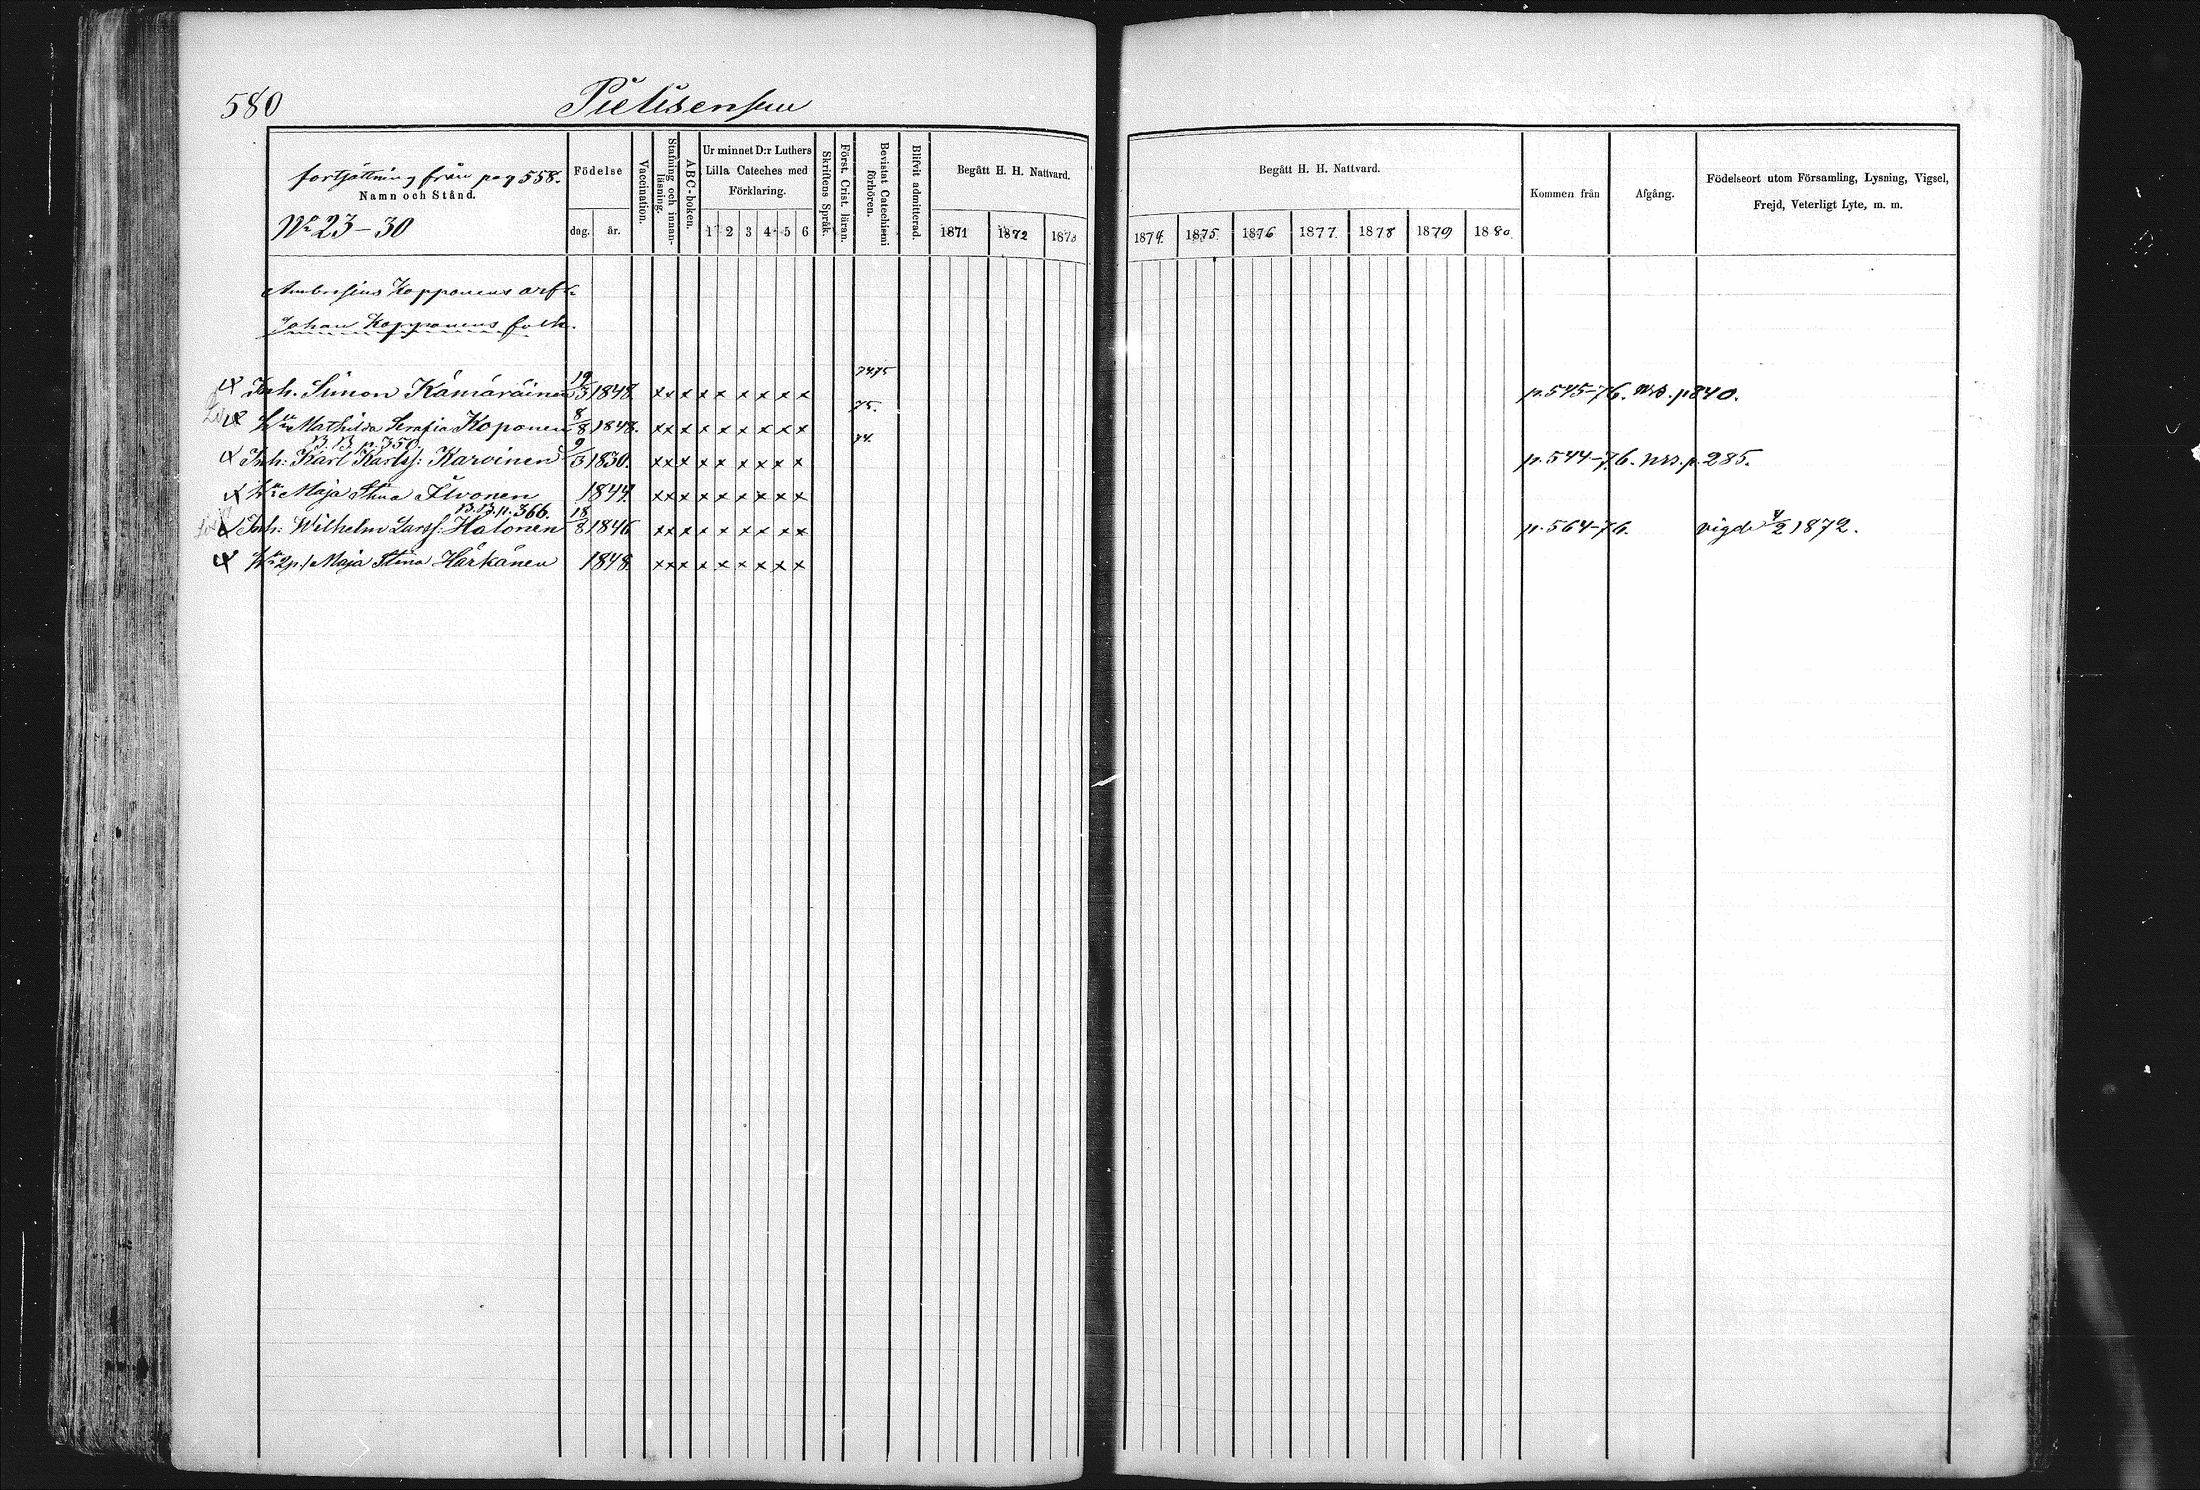 580
Pielisensuu
fortsättning från pag 558.
Namn och Stånd.
No 23-30
Födelse
dag. år.
Vaccination.
Stafning och innanläsning.
ABC-boken.
Ur minnet D:r Luthers
Lilla Cateches med
Förklaring.
1 2 3 4 5 6
Skriftens Språk
Först. Crist. läran.
Bevistat Catechismi förhören.
Blifvit admitterad.
Begått H. H. Nattvard.
1871 1872 1873
Begått H. H. Nattvard.
1874. 1875 1876 1877. 1878 1879 1880.
Kommen från
Afgång.
Födelseort utom Församling, Lysning, Vigsel,
Frejd, Veterligt Lyte, m. m.
Ambrosius Kopponens arf.
Johan Kopponens folk.
Inh. Simon Kämäräinen 19/3 1848. x x x x x x x x x 74.75 p. 545-76. nrs. p 840.
Hu Mathilda Serafia Koponen 8/8 1848. x x x x x x x x x 75.
B.B. p. 350.
Inh: Karl Karlss: Karvinen 9/3 1850. x x x x x x x x x 74. p. 544-76. nrs. p. 285.
Hu Maja Stina Ilvonen 1844. x x x x x x x x x
B.B. p. 366.
Inh: Wilhelm Larss: Halonen 18/8 1846 x x x x x x x x x p. 564-76. vigde 4/2 1872.
Hu Maja Stina Härkänen 1848. x x x x x x x x x